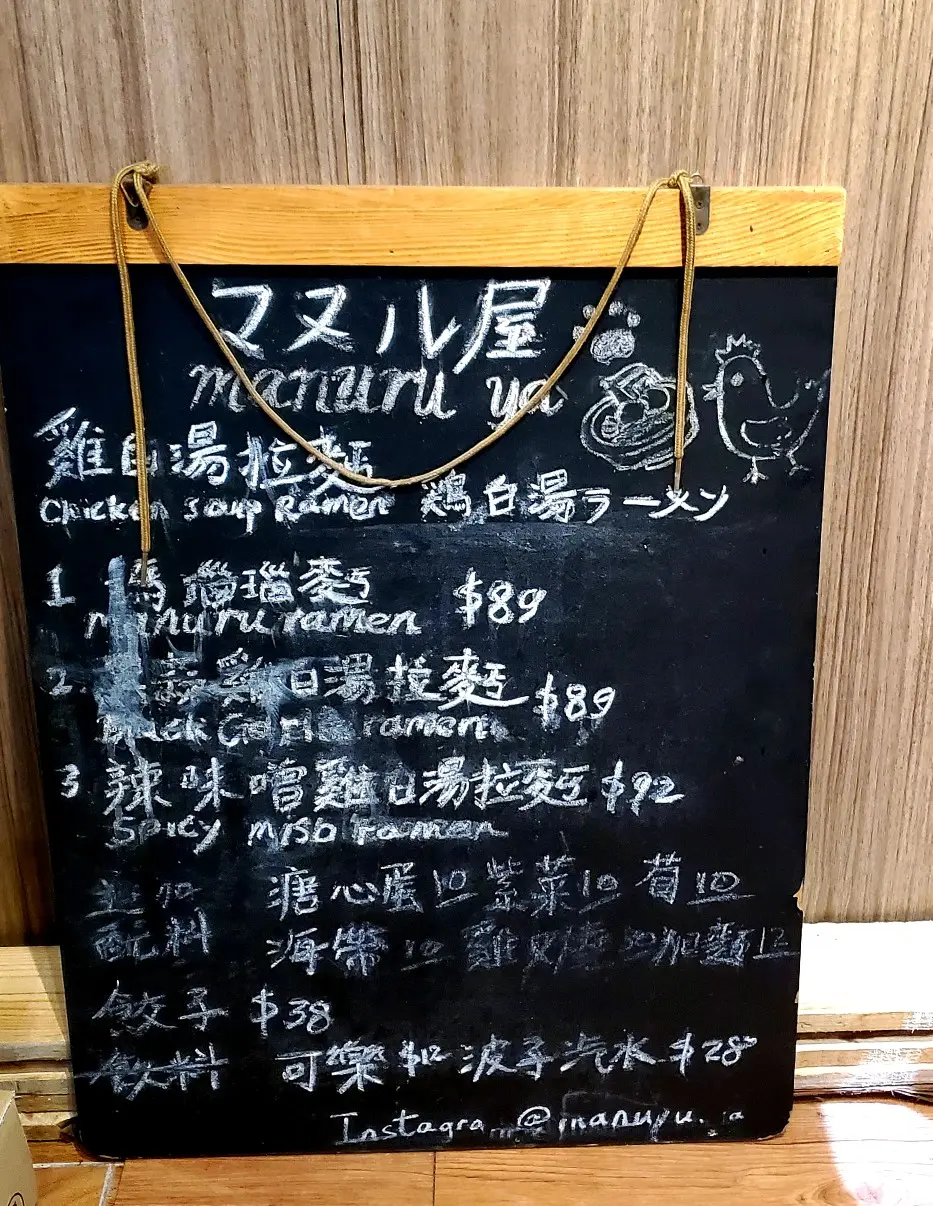 マヌル屋
manuru ya
雞白湯拉麵
Chicken Soup Ramen 鶏白湯ラーメン
1 瑪瑙麵 $89
manuru ramen
2. 蒜雞白湯拉麵 $89
Black Garlic ramen
3 辣味噌雞白湯拉麵 $92
Spicy miso ramen
溏心蛋 10 紫菜 10 筍 10
配料 海帶 10 雞 加麵 12
餃子 $38
飲料 可樂 $12 波子汽水 $28
Instagra @